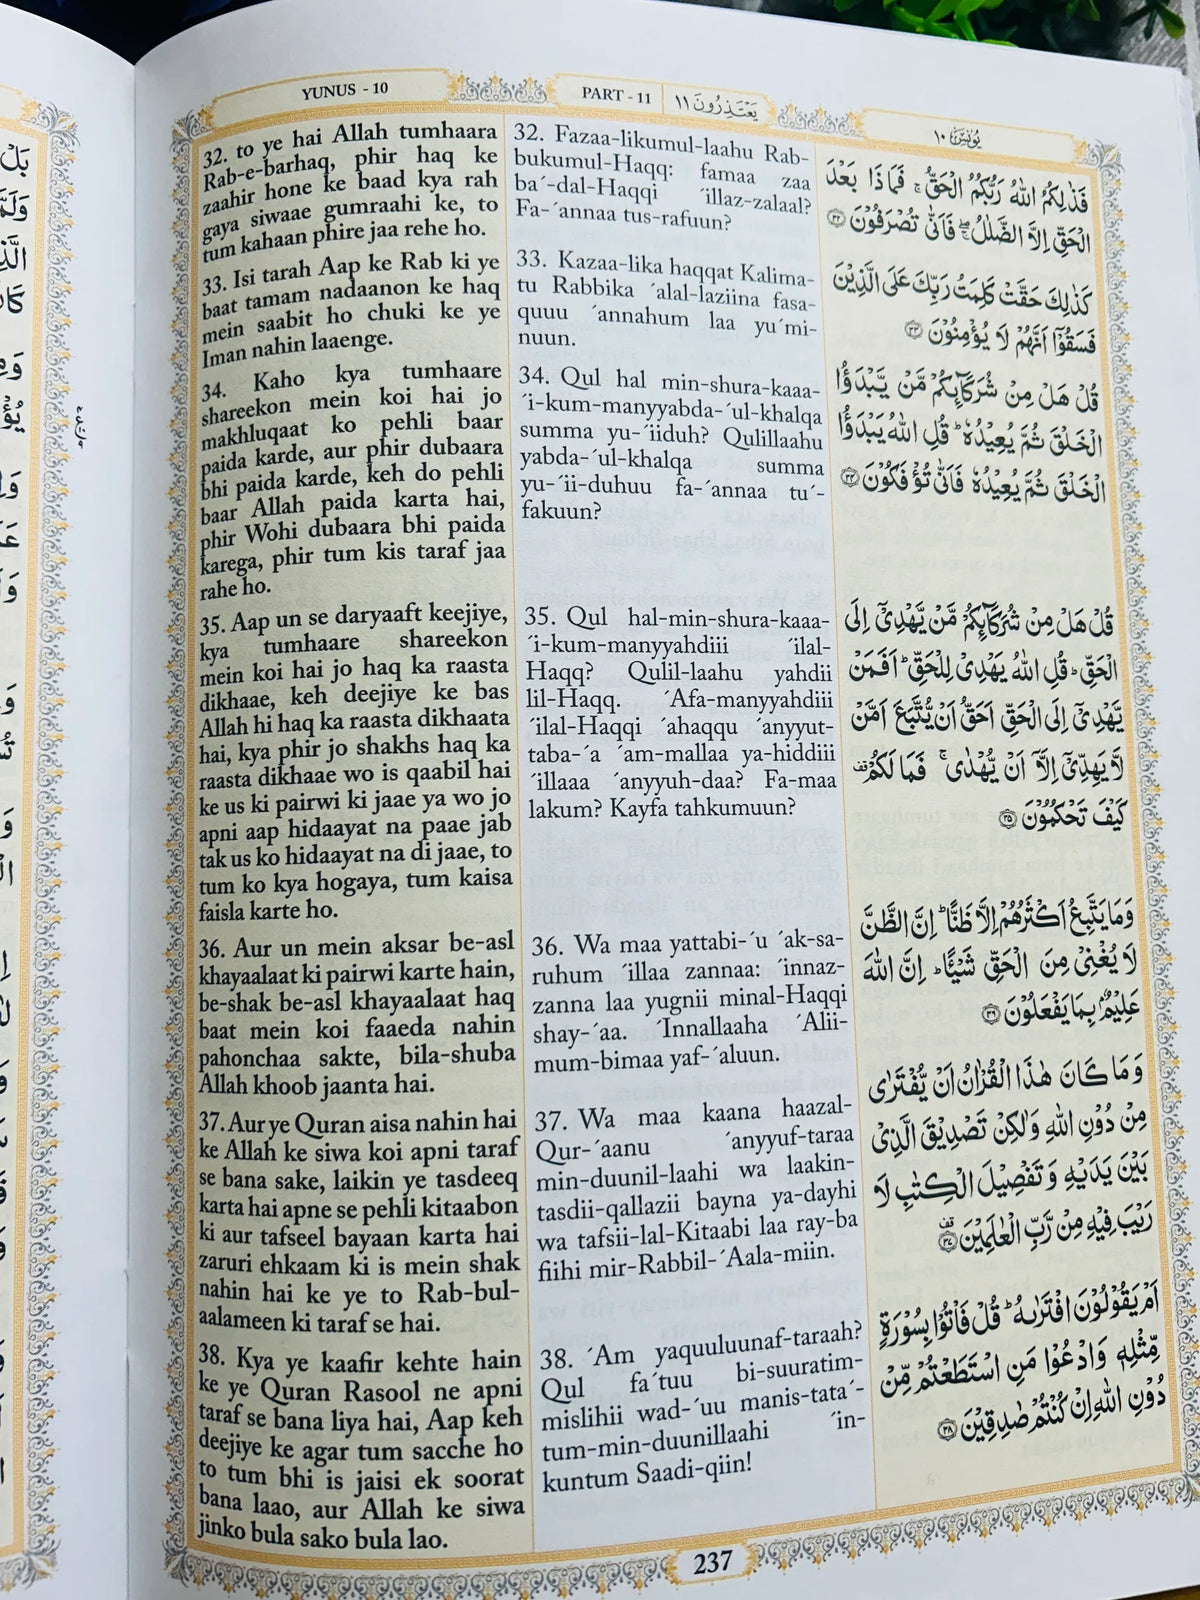 YUNUS - 10
PART - 11
يَعْتَذِرُونَ ١١
يُونُس ١٠
32. to ye hai Allah tumhaara
Rab-e-barhaq, phir haq ke
zaahir hone ke baad kya rah
gaya siwaae gumraahi ke, to
tum kahaan phire jaa rehe ho.
33. Isi tarah Aap ke Rab ki ye
baat tamam nadaanon ke haq
mein saabit ho chuki ke ye
Iman nahin laaenge.
34. Kaho kya tumhaare
shareekon mein koi hai jo
makhluqaat ko pehli baar
paida karde, aur phir dubaara
bhi paida karde, keh do pehli
baar Allah paida karta hai,
phir Wohi dubaara bhi paida
karega, phir tum kis taraf jaa
rahe ho.
35. Aap un se daryaaft keejiye,
kya tumhaare shareekon
mein koi hai jo haq ka raasta
dikhaae, keh deejiye ke bas
Allah hi haq ka raasta dikhaata
hai, kya phir jo shakhs haq ka
raasta dikhaae wo is qaabil hai
ke us ki pairwi ki jaae ya wo jo
apni aap hidaayat na paae jab
tak us ko hidaayat na di jaae, to
tum ko kya hogaya, tum kaisa
faisla karte ho.
36. Aur un mein aksar be-asl
khayaalaat ki pairwi karte hain,
be-shak be-asl khayaalaat haq
baat mein koi faaeda nahin
pahonchaa sakte, bila-shuba
Allah khoob jaanta hai.
37. Aur ye Quran aisa nahin hai
ke Allah ke siwa koi apni taraf
se bana sake, laikin ye tasdeeq
karta hai apne se pehli kitaabon
ki aur tafseel bayaan karta hai
zaruri ehkaam ki is mein shak
nahin hai ke ye to Rab-bul-
aalameen ki taraf se hai.
38. Kya ye kaafir kehte hain
ke ye Quran Rasool ne apni
taraf se bana liya hai, Aap keh
deejiye ke agar tum sacche ho
to tum bhi is jaisi ek soorat
bana laao, aur Allah ke siwa
jinko bula sako bula lao.
32. Fazaa-likumul-laahu Rab-
bukumul-Haqq: famaa zaa
ba´-dal-Haqqi ´illaz-zalaal?
Fa-´annaa tus-rafuun?
33. Kazaa-lika haqqat Kalima-
tu Rabbika ´alal-laziina fasa-
quuu ´annahum laa yu´mi-
nuun.
34. Qul hal min-shura-kaaa-
´i-kum-manyyabda-´ul-khalqa
summa yu-´iiduh? Qulillaahu
yabda-´ul-khalqa summa
yu-´ii-duhuu fa-´annaa tu´-
fakuun?
35. Qul hal-min-shura-kaaa-
´i-kum-manyyahdiii ´ilal-
Haqq? Qulil-laahu yahdii
lil-Haqq. ´Afa-manyyahdiii
´ilal-Haqqi ´ahaqqu ´anyyut-
taba-´a ´am-mallaa ya-hiddiii
´illaaa ´anyyuh-daa? Fa-maa
lakum? Kayfa tahkumuun?
36. Wa maa yattabi-´u ´ak-sa-
ruhum ´illaa zannaa: ´innaz-
zanna laa yugnii minal-Haqqi
shay-´aa. ´Innallaaha ´Alii-
mum-bimaa yaf-´aluun.
37. Wa maa kaana haazal-
Qur-´aanu ´anyyuf-taraa
min-duunil-laahi wa laakin-
tasdii-qallazii bayna ya-dayhi
wa tafsii-lal-Kitaabi laa ray-ba
fiihi mir-Rabbil-´Aala-miin.
38. ´Am yaquuluunaf-taraah?
Qul fa´tuu bi-suuratim-
mislihii wad-´uu manis-tata´-
tum-min-duunillaahi ´in-
kuntum Saadi-qiin!
فَذٰلِكُمُ اللّٰهُ رَبُّكُمُ الْحَقُّ ۚ فَمَاذَا بَعْدَ
الْحَقِّ اِلَّا الضَّلٰلُ ۖ فَاَنّٰى تُصْرَفُوْنَ ۝٣٢
كَذٰلِكَ حَقَّتْ كَلِمَتُ رَبِّكَ عَلَى الَّذِيْنَ
فَسَقُوْۤا اَنَّهُمْ لَا يُؤْمِنُوْنَ ۝٣٣
قُلْ هَلْ مِنْ شُرَكَآئِكُمْ مَّنْ يَّبْدَؤُا
الْخَلْقَ ثُمَّ يُعِيْدُهٗ ؕ قُلِ اللّٰهُ يَبْدَؤُا
الْخَلْقَ ثُمَّ يُعِيْدُهٗ فَاَنّٰى تُؤْفَكُوْنَ ۝٣٤
قُلْ هَلْ مِنْ شُرَكَآئِكُمْ مَّنْ يَّهْدِيْۤ اِلَى
الْحَقِّ ؕ قُلِ اللّٰهُ يَهْدِيْ لِلْحَقِّ ؕ اَفَمَنْ
يَّهْدِيْۤ اِلَى الْحَقِّ اَحَقُّ اَنْ يُّتَّبَعَ اَمَّنْ
لَّا يَهِدِّيْۤ اِلَّاۤ اَنْ يُّهْدٰى ۚ فَمَا لَكُمْ قف
كَيْفَ تَحْكُمُوْنَ ۝٣٥
وَمَا يَتَّبِعُ اَكْثَرُهُمْ اِلَّا ظَنًّا ؕ اِنَّ الظَّنَّ
لَا يُغْنِيْ مِنَ الْحَقِّ شَيْـًٔا ؕ اِنَّ اللّٰهَ
عَلِيْمٌۢ بِمَا يَفْعَلُوْنَ ۝٣٦
وَمَا كَانَ هٰذَا الْقُرْاٰنُ اَنْ يُّفْتَرٰى
مِنْ دُوْنِ اللّٰهِ وَلٰكِنْ تَصْدِيْقَ الَّذِيْ
بَيْنَ يَدَيْهِ وَتَفْصِيْلَ الْكِتٰبِ لَا
رَيْبَ فِيْهِ مِنْ رَّبِّ الْعٰلَمِيْنَ ۝٣٧ قف
اَمْ يَقُوْلُوْنَ افْتَرٰىهُ ؕ قُلْ فَاْتُوْا بِسُوْرَةٍ
مِّثْلِهٖ وَادْعُوْا مَنِ اسْتَطَعْتُمْ مِّنْ
دُوْنِ اللّٰهِ اِنْ كُنْتُمْ صٰدِقِيْنَ ۝٣٨
237